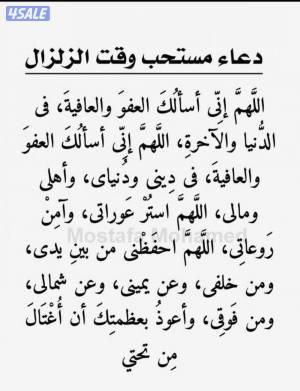 4SALE
دعاء مستحب وقت الزلزال
اللَّهمَّ إنِّى أسألُكَ العفوَ والعافيةَ، فى
الدُّنيا والآخرةِ، اللَّهمَّ إنِّى أسألُكَ العفوَ
والعافيةَ، فى دِينى ودُنياى، وأهلى
ومالى، اللَّهمَّ استُرْ عَوراتى، وآمِنْ
Mostafa Mohamed
رَوعاتِى، اللَّهمَّ احفَظْنى من بينِ يدى،
ومن خلفى، وعن يمينى، وعن شمالى،
ومن فَوقِى، وأعوذُ بعظمتِكَ أن أُغْتَالَ
مِن تحتي